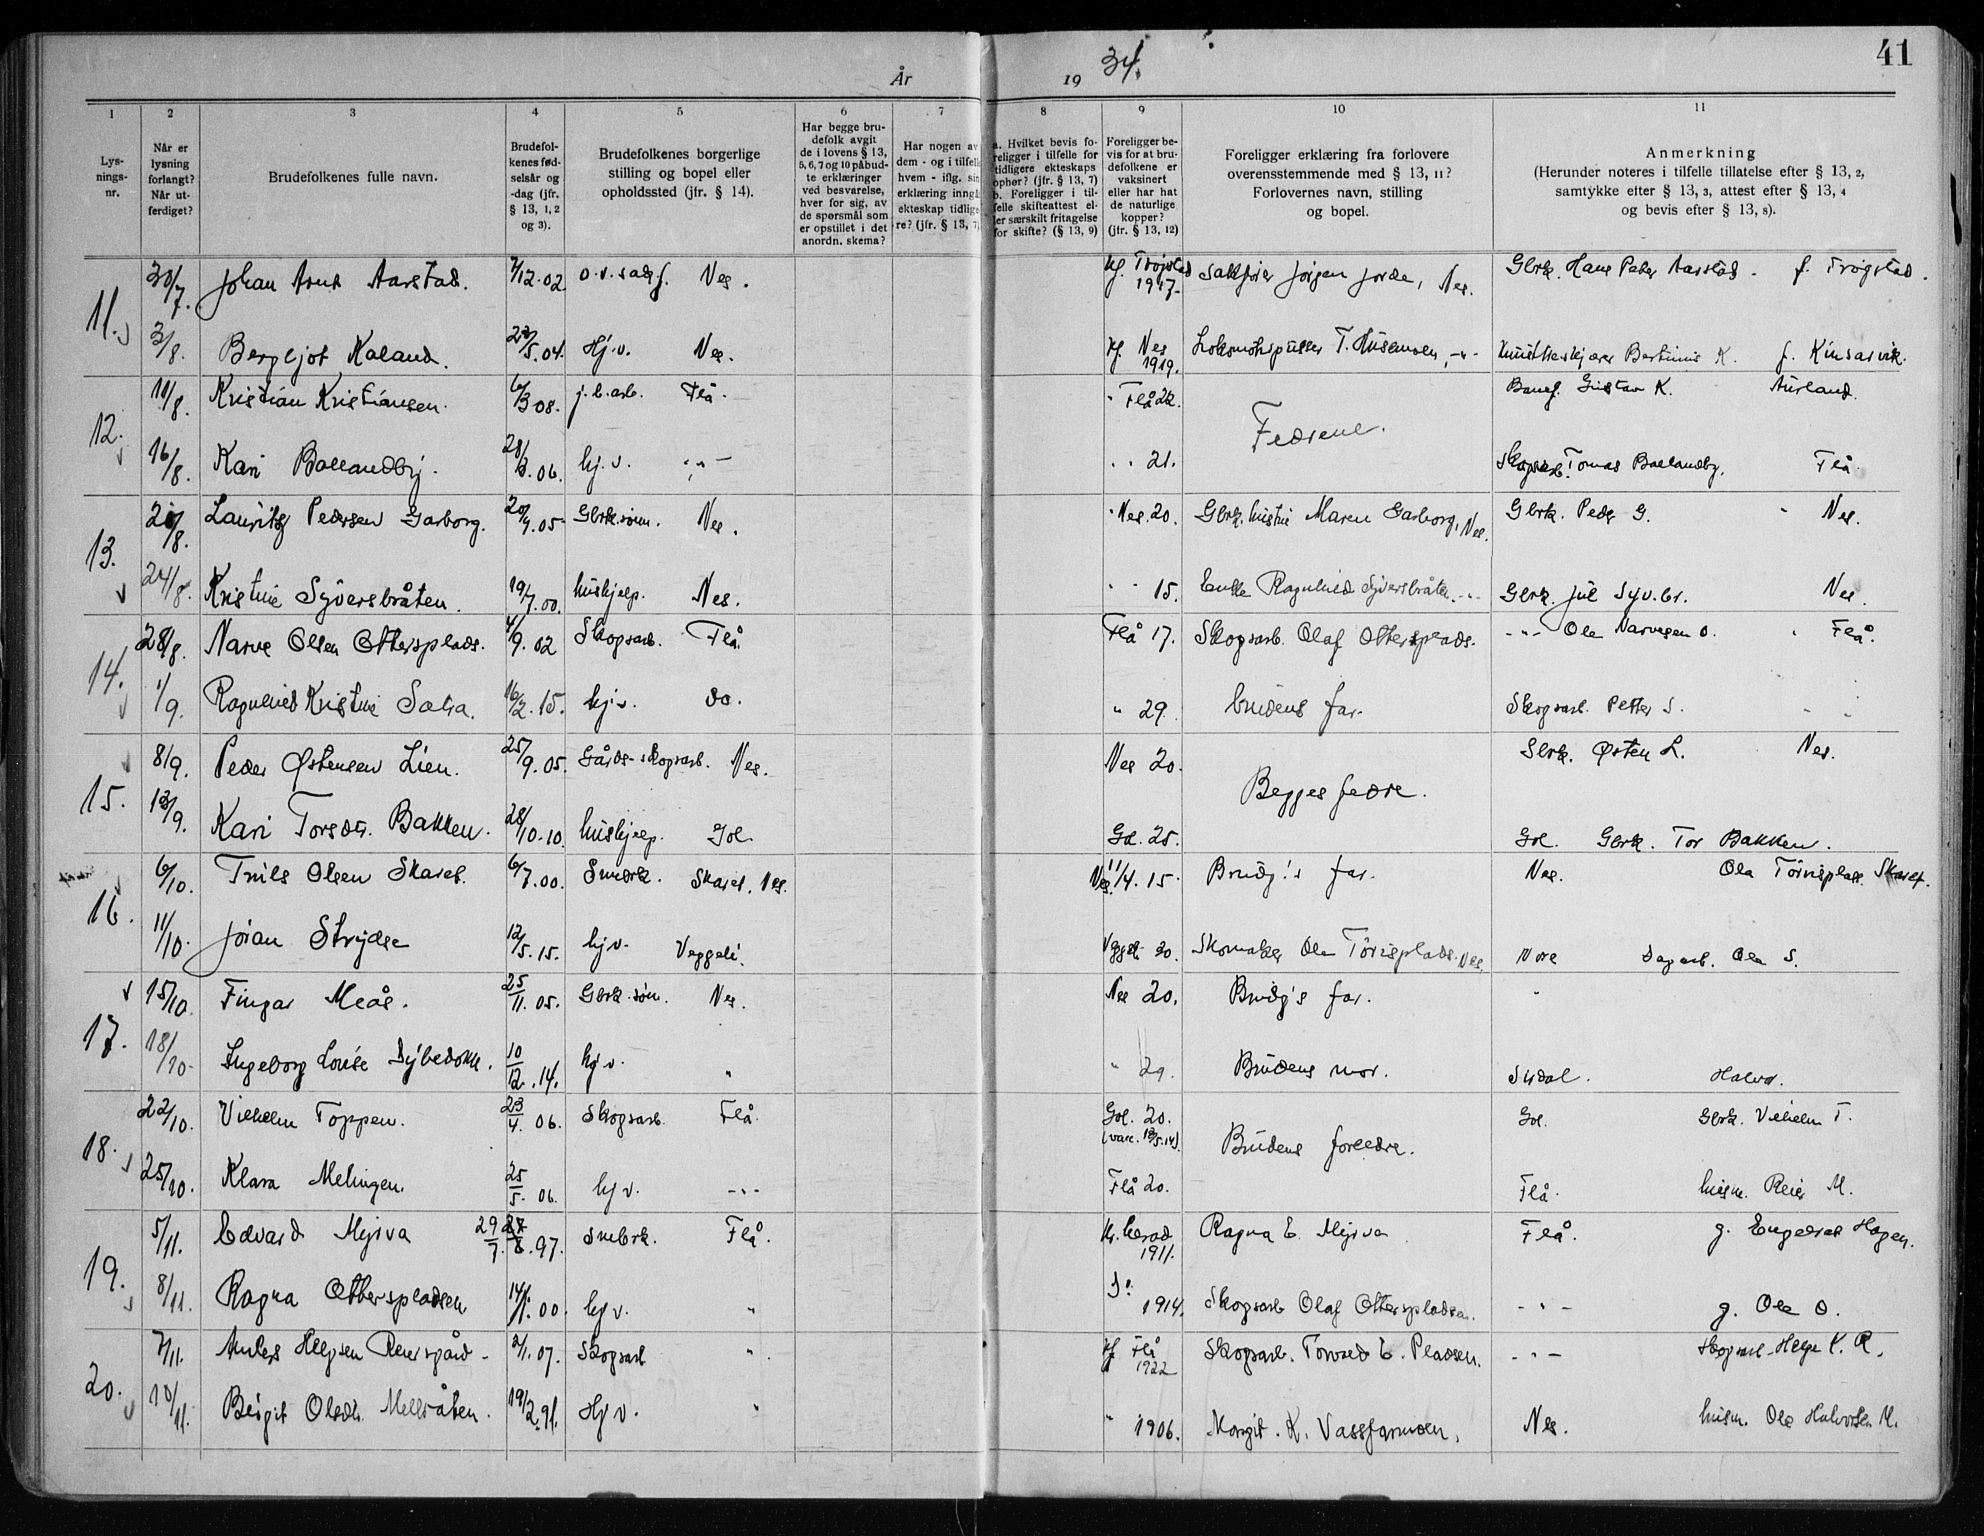 År 1934.
41
1 2 3 4 5 6 7 8 9 10 11
Lysningsnr.
Når er lysning forlangt? Når utferdiget?
Brudefolkenes fulle navn.
Brudefolkenes fødselsår og -dag (jfr. § 13, 1, 2 og 3).
Brudefolkenes borgerlige stilling og bopel eller opholdssted (jfr. § 14).
Har begge brudefolk avgit de i lovens § 13, 5, 6, 7 og 10 påbudte erklæringer ved besvarelse, hver for sig, av de spørsmål som er opstillet i det anordn. skema?
Har nogen av dem - og i tilfelle hvem - iflg. sin erklæring inngå ekteskap tidligere? (jfr. § 13, 7)
a. Hvilket bevis foreligger i tilfelle for tidligere ekteskaps ophør? (jfr. § 13, 7) b. Foreligger i tilfelle skifteattest eller særskilt fritagelse for skifte? (§ 13, 9)
Foreligger bevis for at brudefolkene er vaksinert eller har hat de naturlige kopper? (jfr. § 13, 12)
Foreligger erklæring fra forlovere overensstemmende med § 13, 11? Forlovernes navn, stilling og bopel.
Anmerkning (Herunder noteres i tilfelle tillatelse efter § 13, 2, samtykke efter § 13, 3, attest efter § 13, 4 og bevis efter § 13, 8).
11. 30/7. Johan Arnt Aarstad. 7/12.02 o.r.sakf. Nes. Kf. Trøgstad 1917. Sakfører Jørgen Jorde, Nes. Gbrk. Hans Peter Aarstad. f. Trøgstad.
3/8. Bergljot Kaland. 23/5.04. Hj.v. Nes. Kf. Nes 1919. Lokomotivpusser T. Husemoen, -"- Bertinius K. f. Kinsarvik.
12. 11/8. Kristian Kristiansen. 6/3 08. j.b.arb. Flå. " Flå 22. Fedrene. Banef. Gustav K. Aurland.
16/8. Kari Ballandby. 28/3.06. hj.v. -"- " " 21. Skogsarb. Tomas Ballandby. Flå
13. 20/8. Laurits Pedersen Garborg. 20/9.05 Gbrk.sønn. Nes. " Nes. 20. Gbrk.hustru Maren Garborg, Nes. Gbrk. Peder G. " Nes.
24/8. Kristine Syversbråten. 19/7.00. hushjelp. Nes. " " 15. Enke Ragnhild Syversbråten. -"- Gbrk. Jul Syv.br. Nes.
14. 28/8. Narve Olsen Ottersplads. 4/9.02 Skogsarb. Flå. Flå 17. Skogsarb. Olaf Ottersplads. -"- Ole Narvesen O. " Flå.
1/9. Ragnhild Kristine Solia. 16/2.15. hj.v. do. " 29. brudens far. Skogsarb. Petter S. " "
15. 8/9. Peder Østensen Lien. 25/9.05. Gårds-skogsarb. Nes. Nes 20. Begges fedre. Gbrk. Østen L. Nes.
13/9. Kari Torsdtr. Bakken. 28/10.10. hushjelp. Gol Gol. 25. Gol. Gbrk. Tor Bakken.
16. 6/10. Truls Olsen Skaret. 6/7.00. Småbrk. Skaret. Nes. Nes. 11/4.15. Brudg.'s far. Nes. Ola Törrisplass Skaret.
11/10. Jöran Strydse 12/5.15. hj.v. Veggeli. Veggeli 30. Skomaker Ola Törrisplads Nes. Nore Dagarb. Ola S.
17. 15/10. Fingar Meås. 25/11.05. Gbrk.sønn. Nes. Nes 20. Brudg's far. "
18/10. Ingeborg Lovise Dybedokk. 10/12.14. hj v. " " 29. Brudens mor. Sirdal. Halvor.
18. 22/10. Vilhelm Toppen. 23/4. 06. Skogsarb. Flå. Gol. 20. (vacc. 13/5.14). Brudens foreldre. Gol. Gbrk. Vilhelm T.
25/10. Klara Melingen. 25/5. 06. hj v. -"- Flå 20. Flå. husm. Reier M.
19. 5/11. Edvard Myrva 29/7. 27/8.97. Småbrk. Flå. Kr.herad 1911. Ragna E. Myrva Flå. g. Engebret Hagen.
8/11. Ragna Ottersplodsen 14/1.00. hj v. " Do 1914. Skogsarb Olaf Ottersplodsen. -"- g. Ole O.
20. 7/11. Anders Helgesen Reiersgård. 2/1.07. Skogsarb " Kf Flå 1922 Skogsarb. Torvald E. Pladsen. -"- Skogsarb. Helge K. R.
10/11. Birgit Olsdtr. Mellbråten. 19/2.91. Hj v. " " 1906. Margit K. Vassfarmoen. Nes. husm. Ole Halvorsen M.